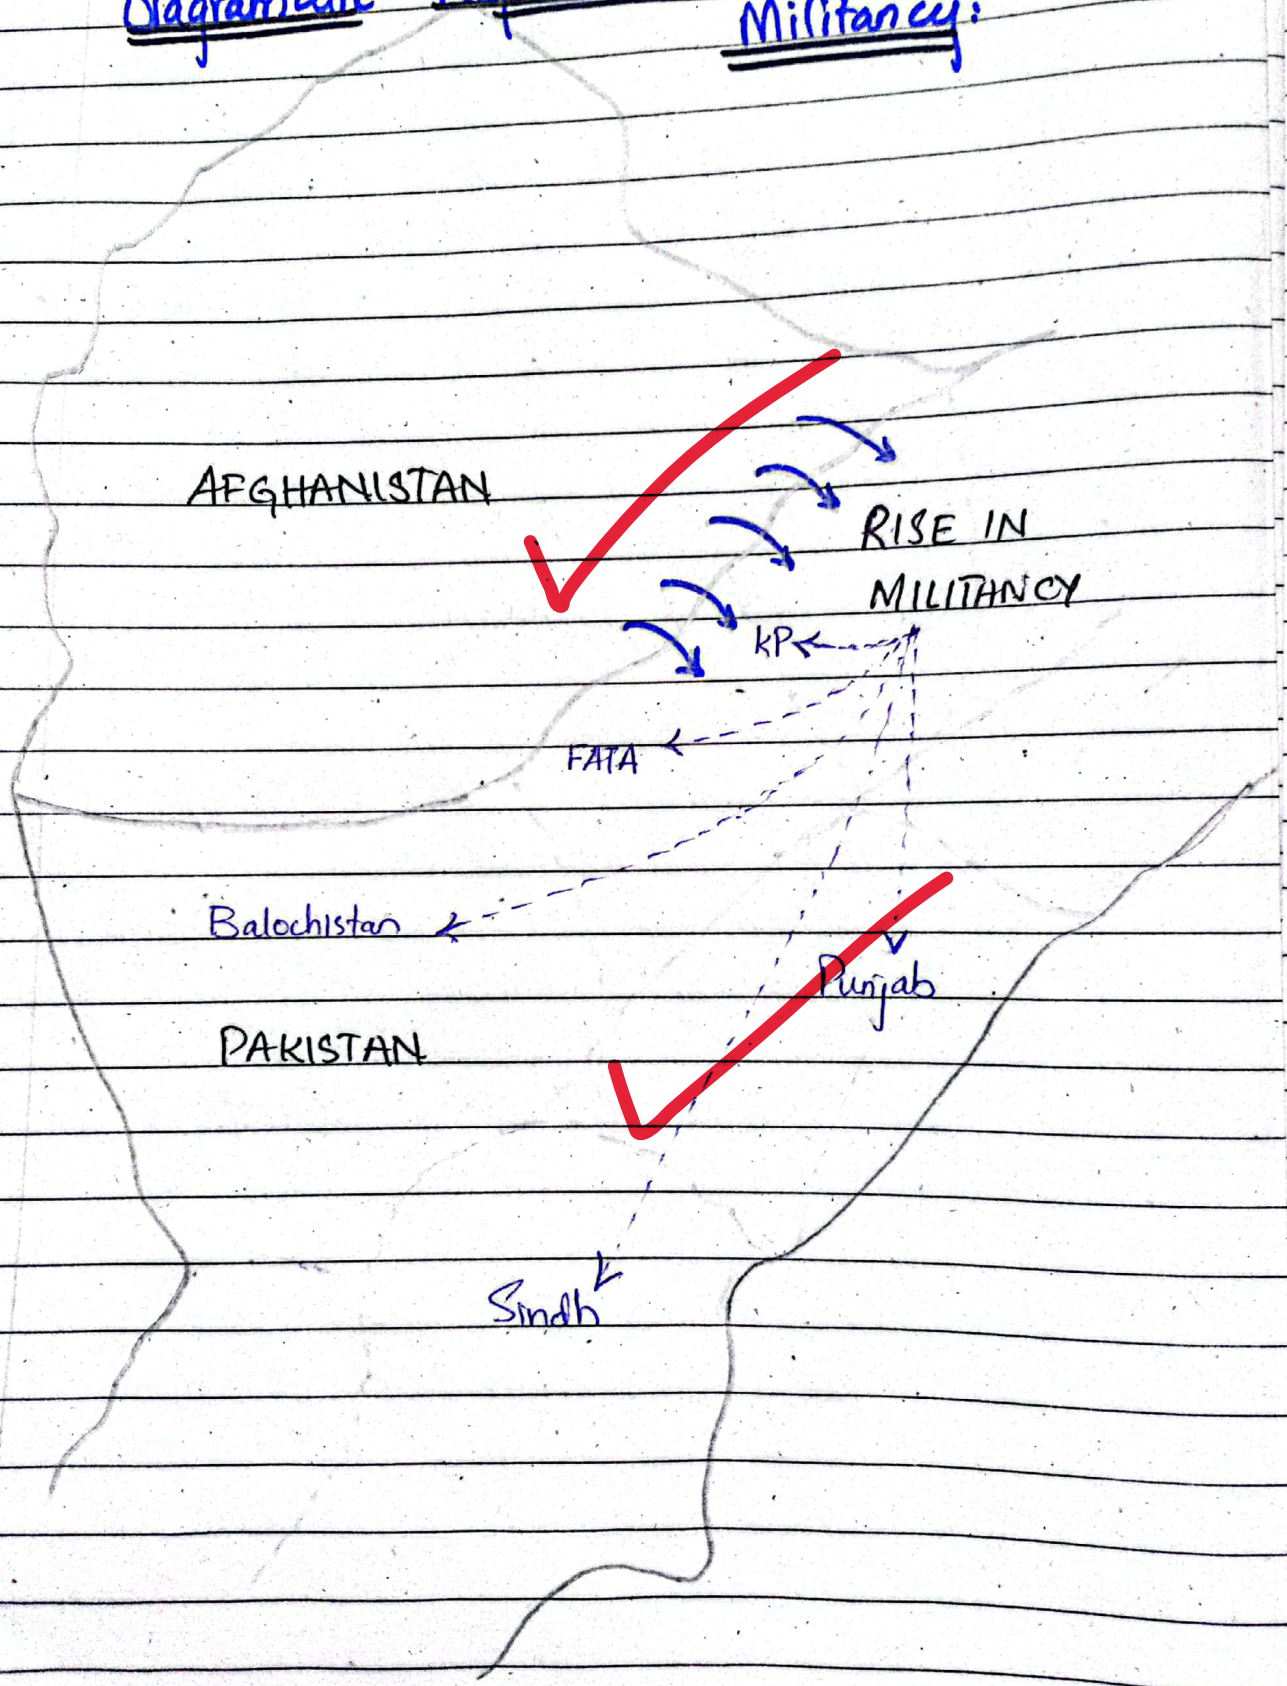 Militancy:
AFGHANISTAN
RISE IN
MILITANCY
KP
FATA
Balochistan
Punjab
PAKISTAN
Sindh